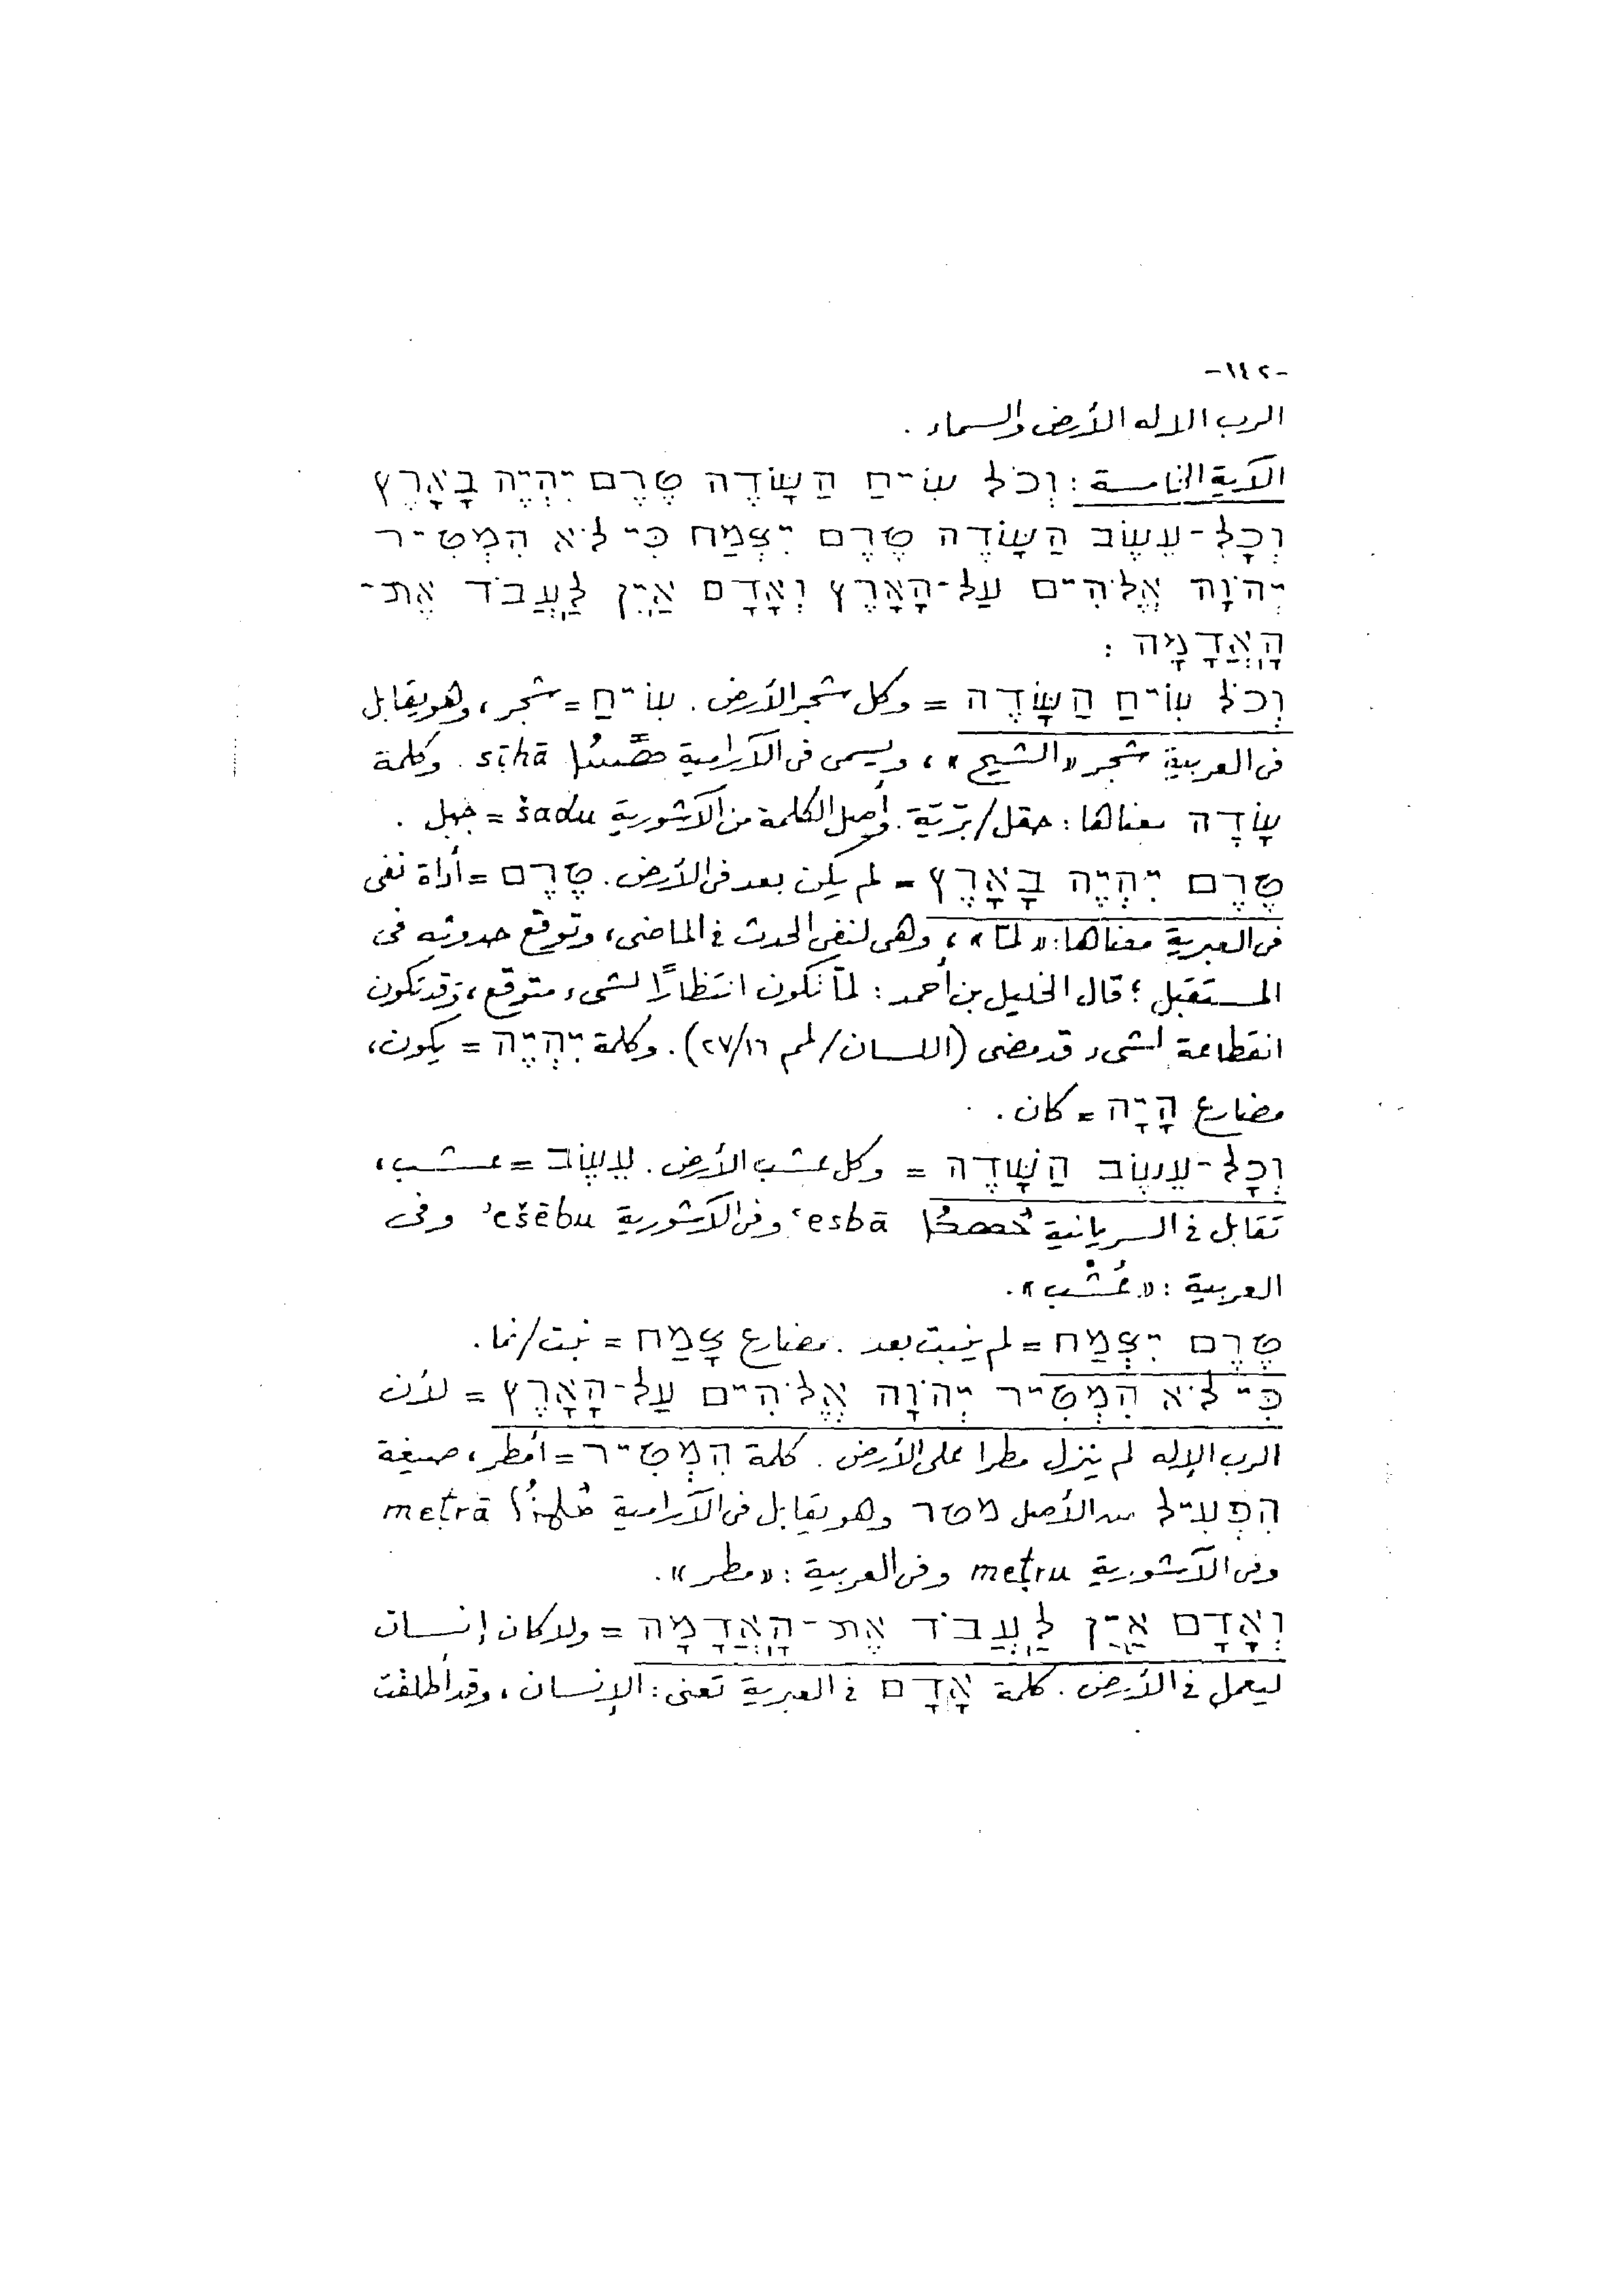 -١٤٢-
الرب الاله الأرض والسماء .
الآية الخامسة : וְכֹל שִׂיחַ הַשָּׂדֶה טֶרֶם יִהְיֶה בָאָרֶץ
וְכָל-עֵשֶׂב הַשָּׂדֶה טֶרֶם יִצְמַח כִּי לֹא הִמְטִיר
יְהוָֹה אֱלֹהִים עַל-הָאָרֶץ וְאָדָם אַיִן לַעֲבֹד אֶת-
הָאֲדָמָה :
וְכֹל שִׂיחַ הַשָּׂדֶה = وكل شجر الأرض . שִׂיחַ = شجر ، وهو يقابل
فى العربية شجر «الشيح» ، ويسمى فى الآرامية ܣܝܚܐ siḥā . وكلمة
שָׂדֶה معناها : حقل / برّيّة . وأصل الكلمة من الآشورية šadu = جبل .
טֶרֶם יִהְיֶה בָאָרֶץ = لم يكن بعد فى الأرض . טֶרֶם = أداة نفى
فى العبرية معناها : «لمّا» ، وهى لنفى الحدث فى الماضى ، وتوقع حدوثه فى
المستقبل ؛ قال الخليل بن أحمد : لمّا تكون انتظارًا لشىء متوقع ، وقد تكون
انقطاعة لشىء قد مضى (اللسان / لمم ٢٧/١٦) . وكلمة יִהְיֶה = يكون ،
مضارع הָיָה = كان .
וְכָל-עֵשֶׂב הַשָּׂדֶה = وكل عشب الأرض . עֵשֶׂב = عشب ،
تقابل فى السريانية ܥܣܒܐ ʿesbā وفى الآشورية ʾešēbu وفى
العربية : «عُشْب» .
טֶרֶם יִצְמַח = لم ينبت بعد . مضارع צָמַח = نبت / نما .
כִּי לֹא הִמְטִיר יְהוָֹה אֱלֹהִים עַל-הָאָרֶץ = لأن
الرب الإله لم ينزل مطرا على الأرض . كلمة הִמְטִיר = أمطر ، صيغة
הִפְעִיל من الأصل מטר وهو يقابل فى الآرامية ܡܛܪܐ meṭrā
وفى الآشورية meṭru وفى العربية : «مطر» .
וְאָדָם אַיִן לַעֲבֹד אֶת-הָאֲדָמָה = ولا كان إنسان
ليعمل فى الأرض . كلمة אָדָם فى العبرية تعنى : الإنسان ، وقد أطلقت